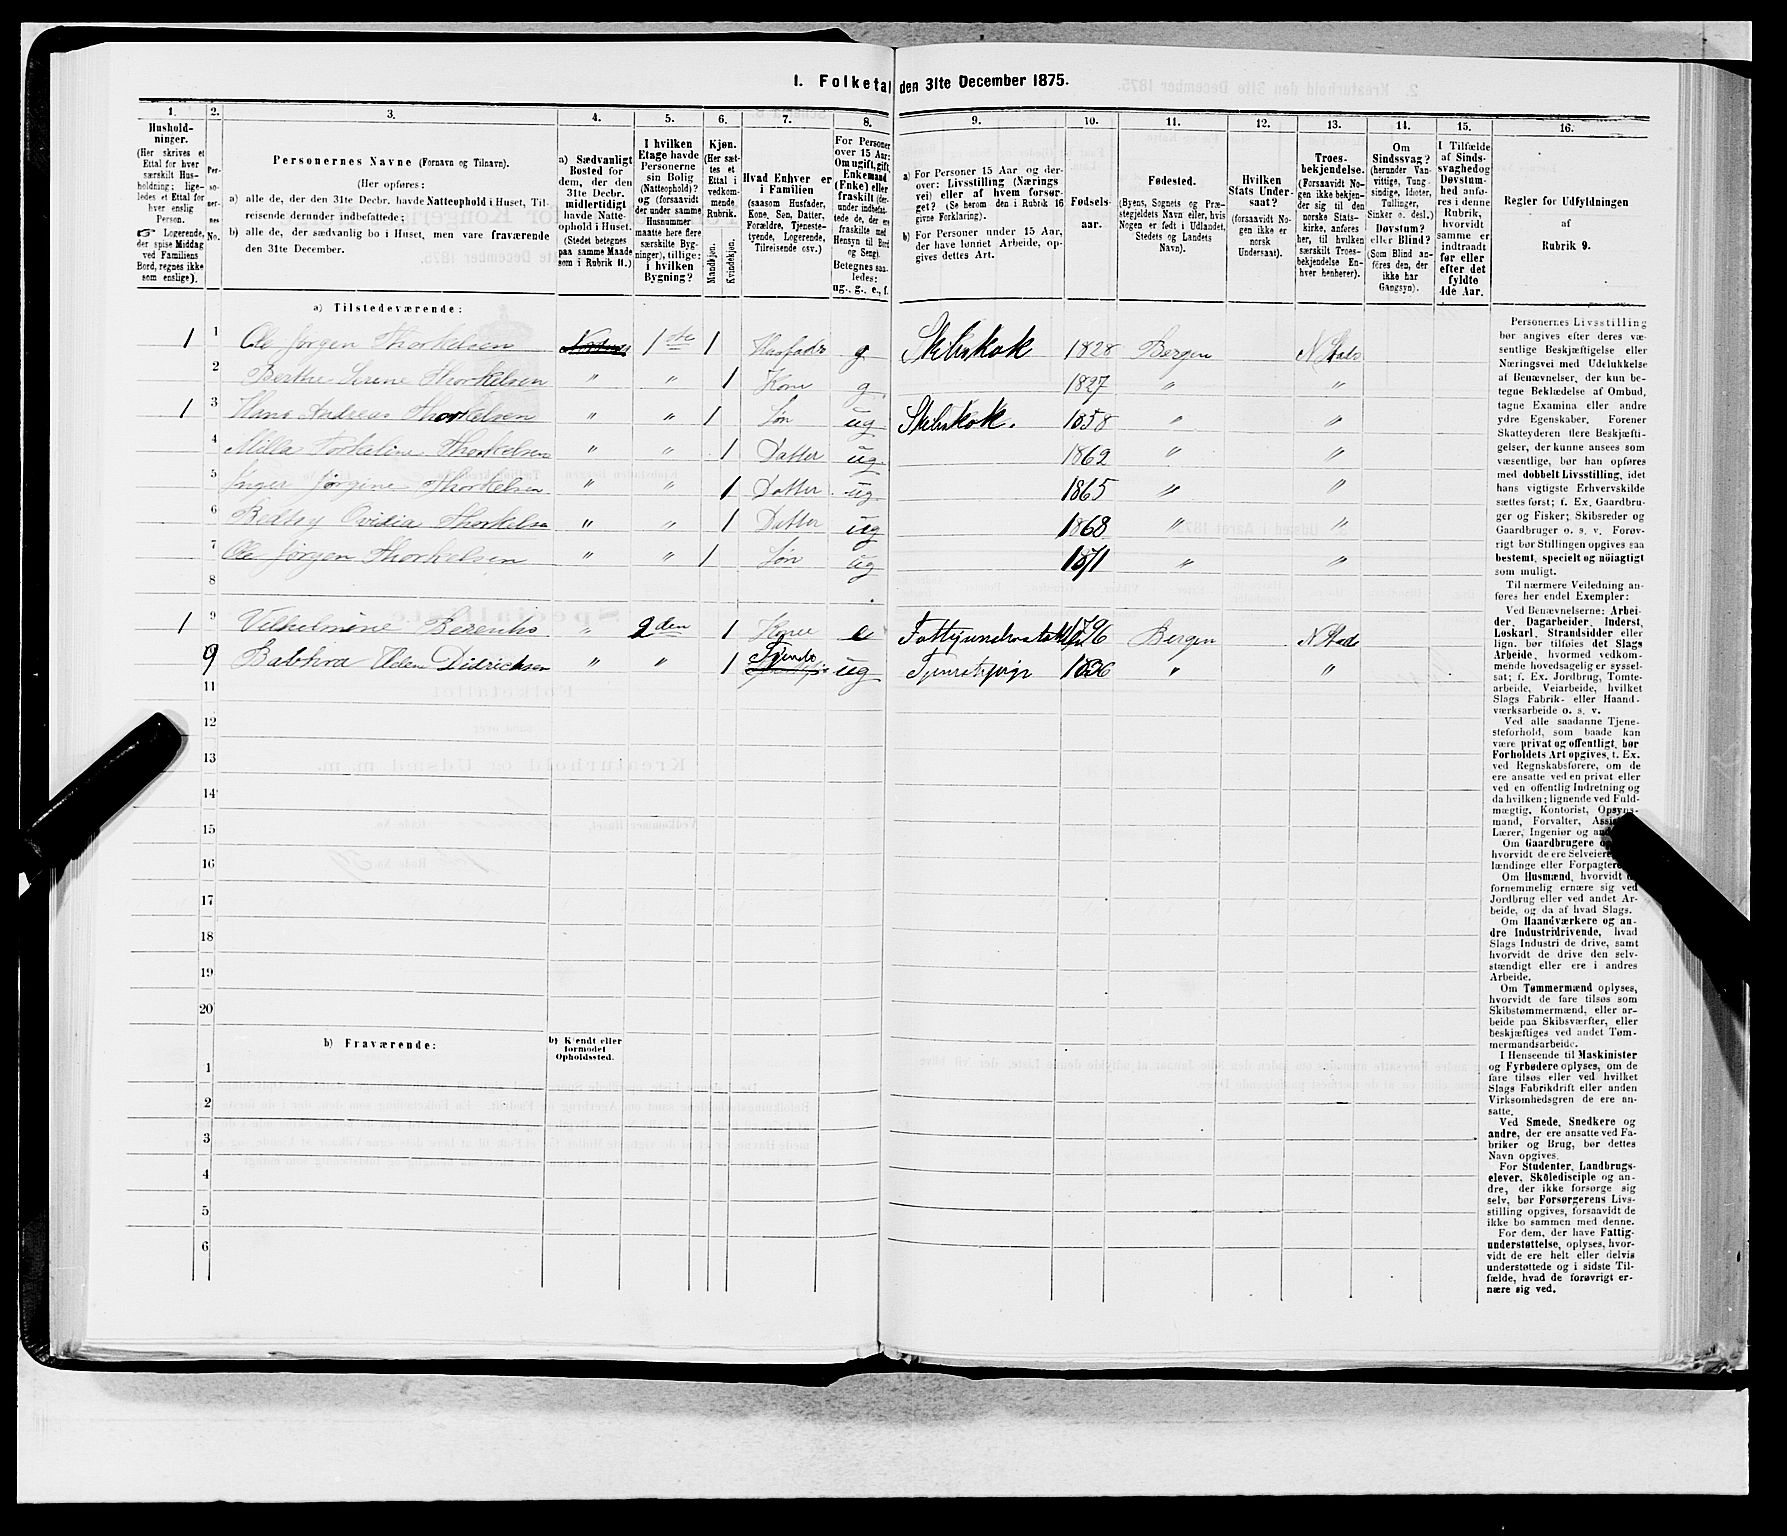 1. Folketal den 31te December 1875.
1.
Hushold-
ninger.
(Her skrives et
Ettal for hver
særskilt Hus-
holdning; lige-
ledes et Ettal for
hver enslig
Person.
Logerende,
der spise Middag
ved Familiens
Bord, regnes ikke
som enslige).
2.
Per-
so-
ner-
nes
No.
3.
Personernes Navne (Fornavn og Tilnavn).
(Her opføres:
a) alle de, der den 31te Decbr. havde Natteophold i Huset, Til-
reisende derunder indbefattede;
b) alle de, der sædvanlig bo i Huset, men vare fraværende
den 31te December.
4.
a) Sædvanligt
Bosted for
dem, der den
31te Decbr.
midlertidigt
havde Natte-
ophold i Huset.
(Stedet betegnes
paa samme Maade
som i Rubrik 11.)
5.
I hvilken
Etage havde
Personerne
sin Bolig
(Natteophold)?
og (forsaavidt
der under samme
Husnummer
maatte høre flere
særskilte Byg-
ninger), tillige:
i hvilken
Bygning?
6.
Kjøn.
(Her sæt-
tes et
Ettal i
vedkom-
mende
Rubrik.
Mandkjøn.
Kvindekjøn.
7.
Hvad Enhver er
i Familien
(saasom Husfader,
Kone, Søn, Datter,
Forældre, Tjeneste-
tyende, Logerende,
Tilreisende osv.)
8.
For Personer
over 15 Aar:
Om ugift, gift,
Enkemand
(Enke) eller
fraskilt (der-
under indbefat-
tede de, der ere
fraskilte med
Hensyn til Bord
og Seng).
Betegnes saa-
ledes:
ug., g., e., f.
9.
a) For Personer 15 Aar og der-
over: Livsstilling (Nærings
vei) eller af hvem forsør-
get? (Se herom den i Rubrik 16
givne Forklaring).
b) For Personer under 15 Aar,
der have lønnet Arbeide, op-
gives dettes Art.
10.
Fødsels-
aar.
11.
Fødested.
(Byens, Sognets og Præ-
stegjeldets Navn eller, hvis
Nogen er født i Udlandet,
Stedets og Landets
Navn).
12.
Hvilken
Stats Under-
saat?
(forsaavidt No-
gen ikke er
norsk
Undersaat).
13.
Troes-
bekjendelse.
(Forsaavidt No-
gen ikke bekjen-
der sig til den
norske Stats-
kirke, anføres
her, til hvilken
særskilt Troes-
bekjendelse En-
hver henhører).
14.
Om
Sindssvag?
(herunder Van-
vittige, Tung
sindige, Idioter,
Tullinger,
Sinker o. desl.)
Døvstum?
eller Blind?
(Som Blind an-
føres den, der
ikke har
Gangsyn).
15.
I Tilfælde
af Sinds-
svaghed og
Døvstum-
hed anfø-
res i denne
Rubrik,
hvorvidt
samme er
indtraadt
før eller
efter det
fyldte
4de Aar.
16.
Regler for Udfyldningen
af
Rubrik 9.
a) Tilstedeværende:
1 1 Ole Jørgen Thorkelsen 1ste 1 Husfader g Skibskok 1828 Bergen N Stats
2 Berthe Serene Thorkelsen " " 1 Kone g 1827 " "
1 3 Hans Andreas Thorkelsen " " 1 Søn ug Skibskok. 1858 " "
4 Milla Torkeline Thorkelsen " " 1 Datter ug 1862 " "
5 Inger Jørgine Thorkelsen " " 1 Datter ug 1865 " "
6 Betsey Ovidia Thorkelse " " 1 Datter ug 1868 " "
7 Ole Jørgen Thorkelsen " " 1 Søn ug 1871 " "
8
1 9 Vilhelmine Berentho " 2den 1 Kone e 1796 Bergen N Stats
9 Elen Didrichsen " " 1 Tyende ug 1836 " "
11
12
13
14
15
16
17
18
19
20
b) Fraværende:
b) Kjendt eller
formodet
Opholdssted.
1
2
3
4
5
6
Personernes Livsstilling
bør angives efter deres væ-
sentlige Beskjæftigelse eller
Næringsvei med Udelukkelse
af Benævnelser, der kun be-
tegne Beklædelse af Ombud,
tagne Examina eller andre
ydre Egenskaber. Forener
Skatteyderen flere Beskjæfti-
gelser, der kunne ansees som
væsentlige, bør han opføres
med dobbelt Livsstilling, idet
hans vigtigste Erhvervskilde
sættes først; f. Ex. Gaardbru-
ger og Fisker; Skibsreder og
Gaardbruger o. s. v. Forøv-
rigt bør Stillingen opgives saa
bestemt, specielt og nöiagtigt
som muligt.
Til nærmere Veiledning an-
føres her endel Exempler:
Ved Benævnelserne: Arbei-
der, Dagarbeider, Inderst,
Løskarl, Strandsidder eller
lign. bør tilføies det Slags
Arbeide, hvormed vedkom-
mende hovedsagelig er syssel-
sat; f. Ex. Jordbrug, Tomte-
arbeide, Veiarbeide, hvilket
Slags Fabrik- eller Haand-
værksarbeide o. s. v.
Ved alle saadanne Tjene-
steforhold, som baade kan
være privat og offentligt, bør
Forholdets Art opgives, t. Ex.
ved Regnskabsførere, om de
ere ansatte ved en privat eller
ved en offentlig Indretning og
da hvilken; lignende ved Fuld-
mægtig, Kontorist, Opsyns-
mand, Forvalter,
Lærer, Ingeniør og
Om Gaardbrugere
hvorvidt de ere Selveiere
lændinge eller Forpagtere
Om Husmænd, hvorvidt
fornemmelig ernære sig ved
Jordbrug eller ved andet Ar-
beide, og da af hvad Slags.
Om Haandværkere og an-
dre Industridrivende, hvad
Slags Industri de drive, samt
hvorvidt de drive den selv-
stændigt eller ere i andres
Arbeide.
Om Tømmermænd oplyses,
hvorvidt de fare tilsøs som
Skibstømmermænd, eller ar-
beide paa Skibsværfter, eller
beskjæftiges ved andet Tøm-
mermandsarbeide.
I Henseende til Maskinister
og Fyrbødere oplyses, om de
fare tilsøs eller ved hvilket
Slags Fabrikdrift eller anden
Virksomhedsgren de ere an-
satte.
Ved Smede, Snedkere og
andre, der ere ansatte ved Fa-
briker og Brug, bør dettes
Navn opgives.
For Studenter, Landbrugs-
elever, Skoledisciple og an-
dre, der ikke forsørge sig
selv, bør Forsørgerens Livs-
stilling opgives, forsaavidt de
ikke bo sammen med denne.
For dem, der have Fattig-
understøttelse, oplyses, hvor-
vidt de ere helt eller delvis
understøttede og i sidste Til-
fælde, hvad de forøvrigt er-
nære sig ved.